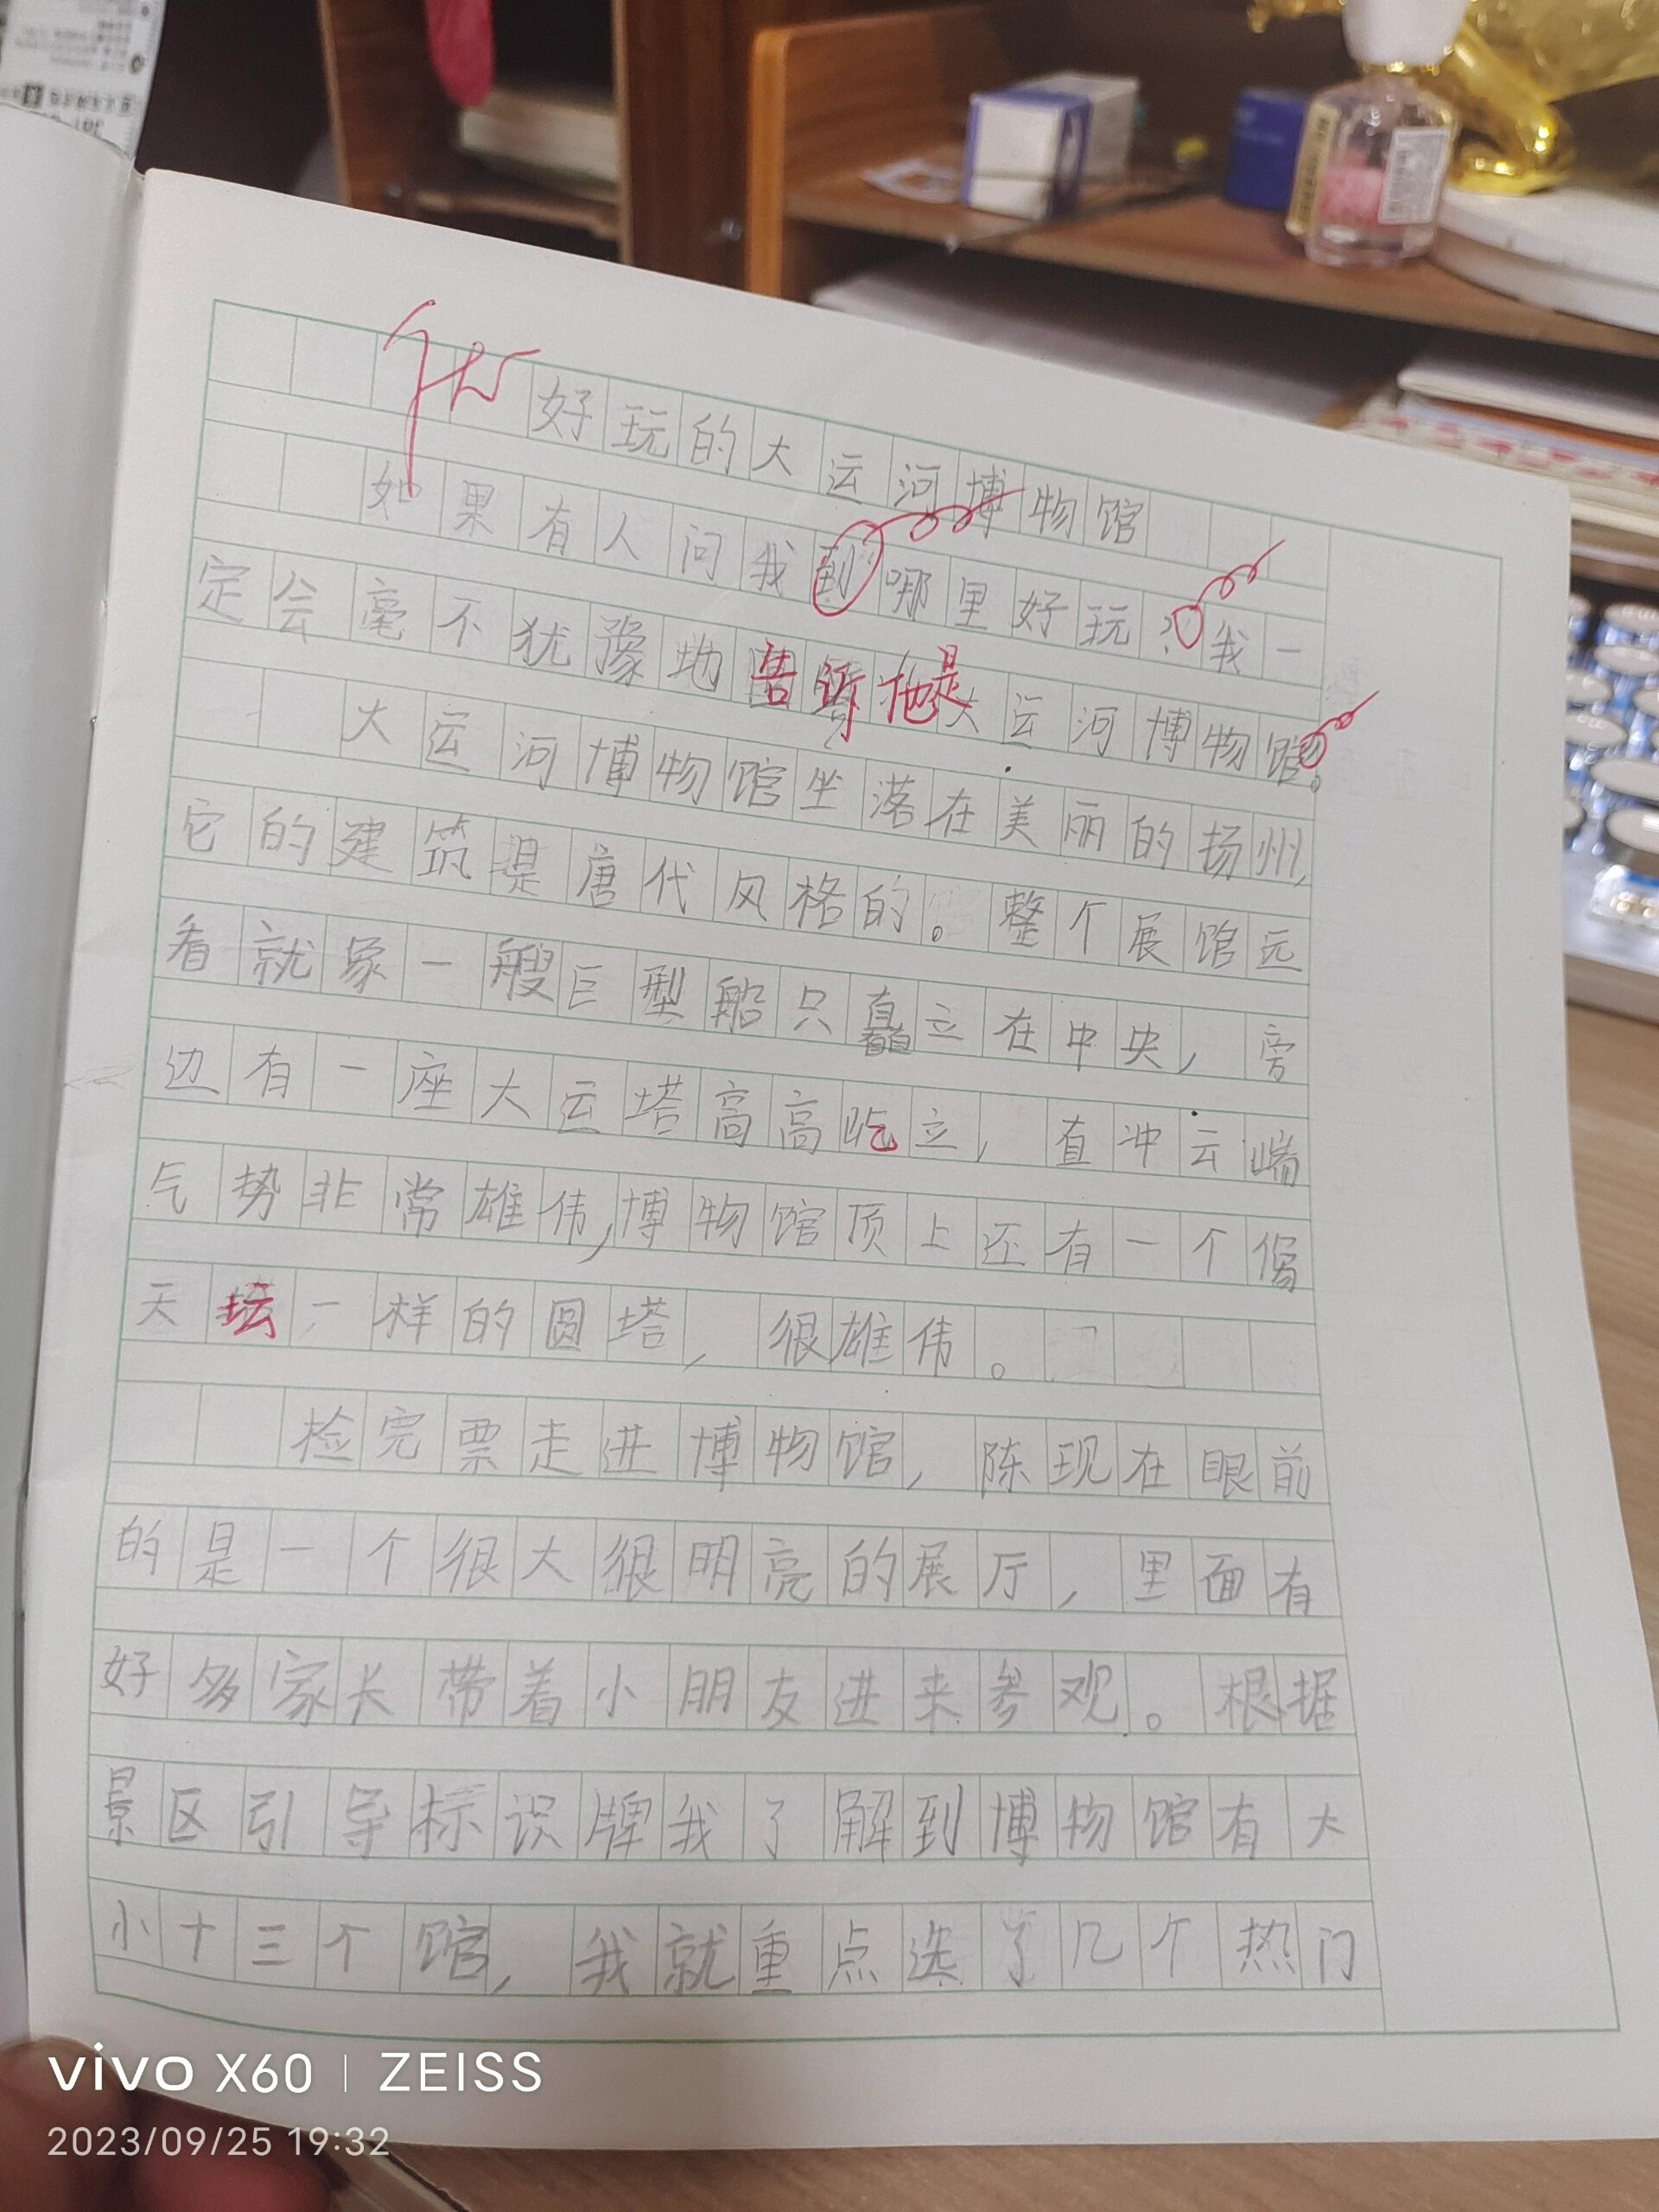 优
好玩的大运河博物馆
如果有人问我到哪里好玩?我一
定会毫不犹豫地告诉他是大运河博物馆。
大运河博物馆坐落在美丽的扬州,
它的建筑是唐代风格的。整个展馆远
看就象一艘巨型船只矗立在中央,旁
边有一座大运塔高高屹立,直冲云端
气势非常雄伟,博物馆顶上还有一个像
天坛一样的圆塔,很雄伟。
检完票走进博物馆,陈现在眼前
的是一个很大很明亮的展厅,里面有
好多家长带着小朋友进来参观。根据
景区引导标识牌我了解到博物馆有大
小十三个馆,我就重点选了几个热门
vivo X60 | ZEISS
2023/09/25 19:32